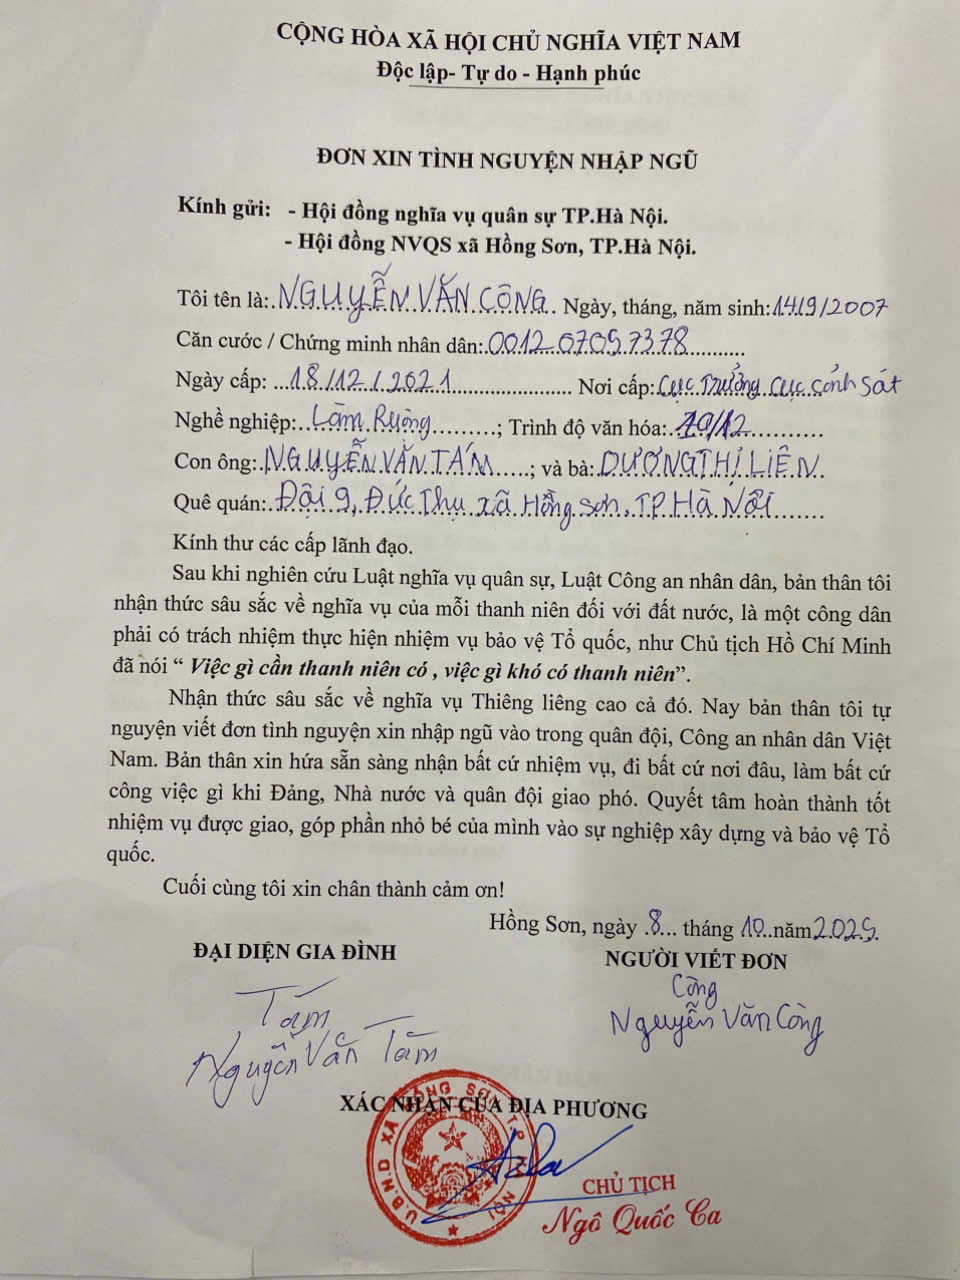 CỘNG HÒA XÃ HỘI CHỦ NGHĨA VIỆT NAM
Độc lập- Tự do - Hạnh phúc
ĐƠN XIN TÌNH NGUYỆN NHẬP NGŨ
Kính gửi: - Hội đồng nghĩa vụ quân sự TP.Hà Nội.
- Hội đồng NVQS xã Hồng Sơn, TP.Hà Nội.
Tôi tên là: NGUYỄN VĂN CÔNG Ngày, tháng, năm sinh: 14/9/2007
Căn cước / Chứng minh nhân dân: 001207057378
Ngày cấp: 18/12/2021 Nơi cấp: Cục Trưởng cục cảnh sát
Nghề nghiệp: Làm Ruộng; Trình độ văn hóa: 10/12
Con ông: NGUYỄN VĂN TÁM; và bà: DƯƠNG THỊ LIÊN
Quê quán: Đội 9, Đức Thụ xã Hồng Sơn, TP Hà Nội
Kính thư các cấp lãnh đạo.
Sau khi nghiên cứu Luật nghĩa vụ quân sự, Luật Công an nhân dân, bản thân tôi
nhận thức sâu sắc về nghĩa vụ của mỗi thanh niên đối với đất nước, là một công dân
phải có trách nhiệm thực hiện nhiệm vụ bảo vệ Tổ quốc, như Chủ tịch Hồ Chí Minh
đã nói “ Việc gì cần thanh niên có , việc gì khó có thanh niên”.
Nhận thức sâu sắc về nghĩa vụ Thiêng liêng cao cả đó. Nay bản thân tôi tự
nguyện viết đơn tình nguyện xin nhập ngũ vào trong quân đội, Công an nhân dân Việt
Nam. Bản thân xin hứa sẵn sàng nhận bất cứ nhiệm vụ, đi bất cứ nơi đâu, làm bất cứ
công việc gì khi Đảng, Nhà nước và quân đội giao phó. Quyết tâm hoàn thành tốt
nhiệm vụ được giao, góp phần nhỏ bé của mình vào sự nghiệp xây dựng và bảo vệ Tổ
quốc.
Cuối cùng tôi xin chân thành cảm ơn!
Hồng Sơn, ngày 8 tháng 10 năm 2025
ĐẠI DIỆN GIA ĐÌNH
NGƯỜI VIẾT ĐƠN
Tám
Nguyễn Văn Tám
Công
Nguyễn Văn Công
XÁC NHẬN CỦA ĐỊA PHƯƠNG
U.B.N.D XÃ HỒNG SƠN T.P HÀ NỘI
CHỦ TỊCH
Ngô Quốc Ca